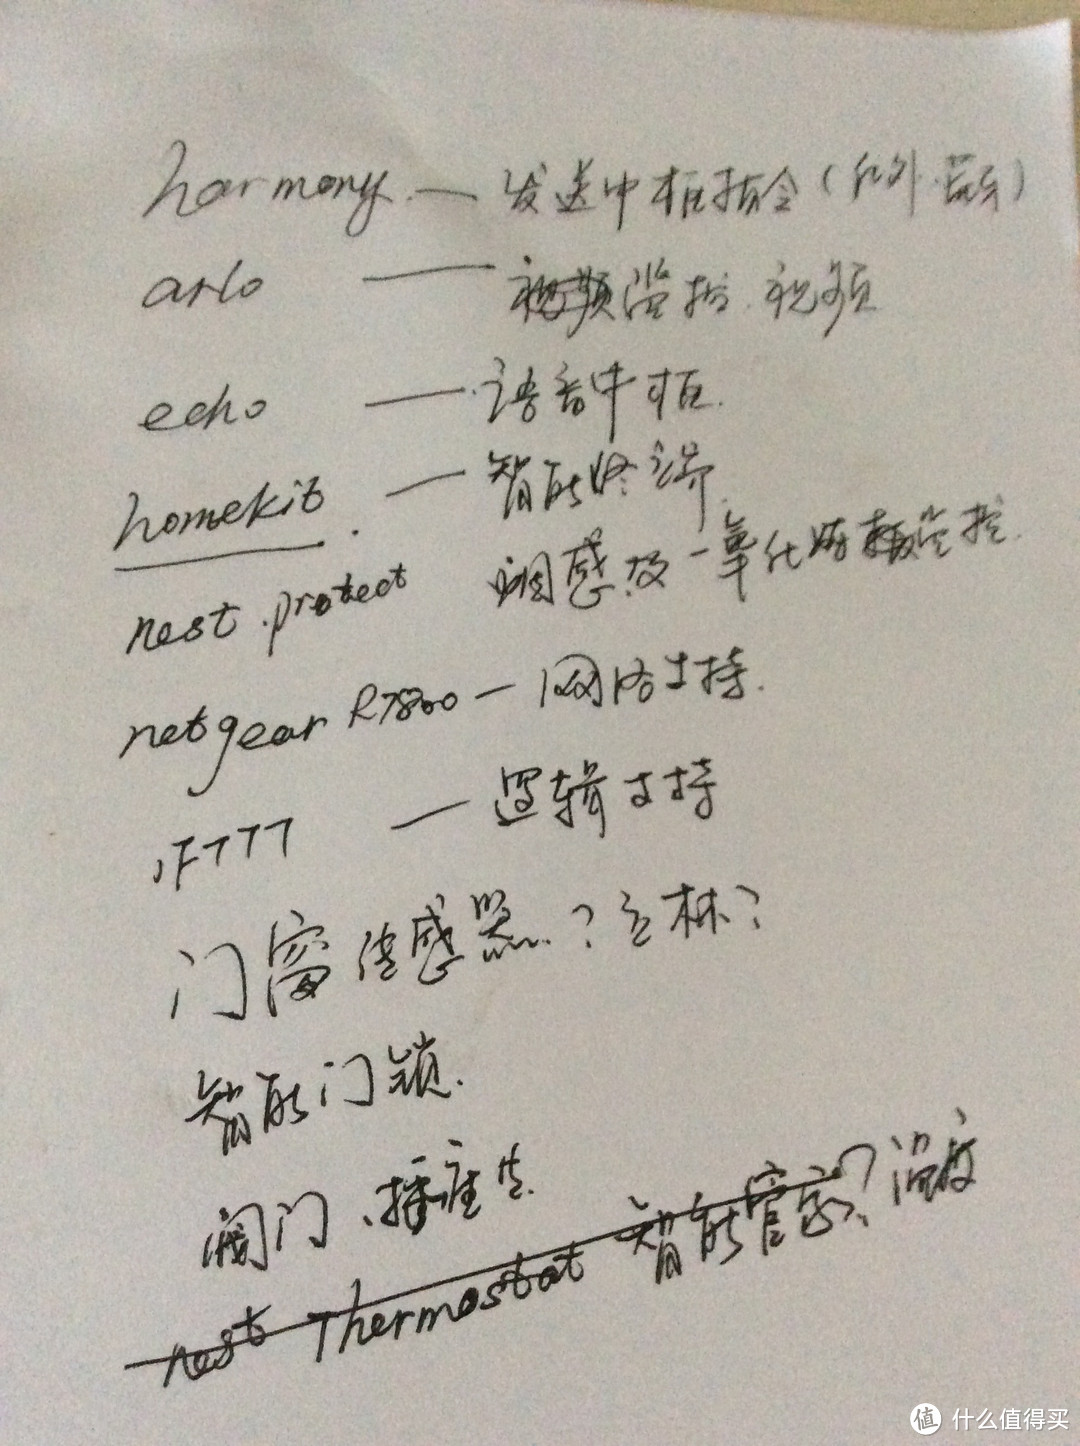 harmony — 发送中枢指令(红外
arlo — 监控.视频
echo — 语音中枢.
homekit. — 智能终端.
nest.protect 烟感及一氧化碳监控.
netgear R7800 — 网络支持.
iFTTT — 逻辑支持
门窗传感器.?立林?
智能门锁.
阀门、插座
nest Thermostat 智能管家?温度
值 什么值得买